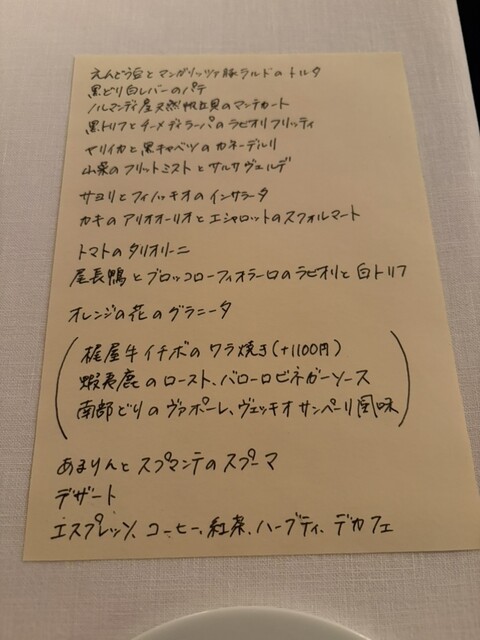 えんどう豆とマンガリッツァ豚ラルドのトルタ
黒どり白レバーのパテ
ノルマンディ産天然帆立貝のマンテカート
黒トリフとチーメ ディ ラーパのラビオリ フリッティ
ヤリイカと黒キャベツのカネーデルリ
山菜のフリットミストとサルサヴェルデ
サヨリとフィノッキオのインサラータ
カキのアリオオーリオとエシャロットのスフォルマート
トマトのタリオリーニ
尾長鴨とブロッコローフィオラーロのラビオリと白トリフ
オレンジの花のグラニータ
梶屋牛イチボのワラ焼き(+1100円)
蝦夷鹿のロースト、バローロビネガーソース
南部どりのヴァポーレ、ヴェッキオ サンペーリ風味
あまりんとスプマンテのスプーマ
デザート
エスプレッソ、コーヒー、紅茶、ハーブティ、デカフェ